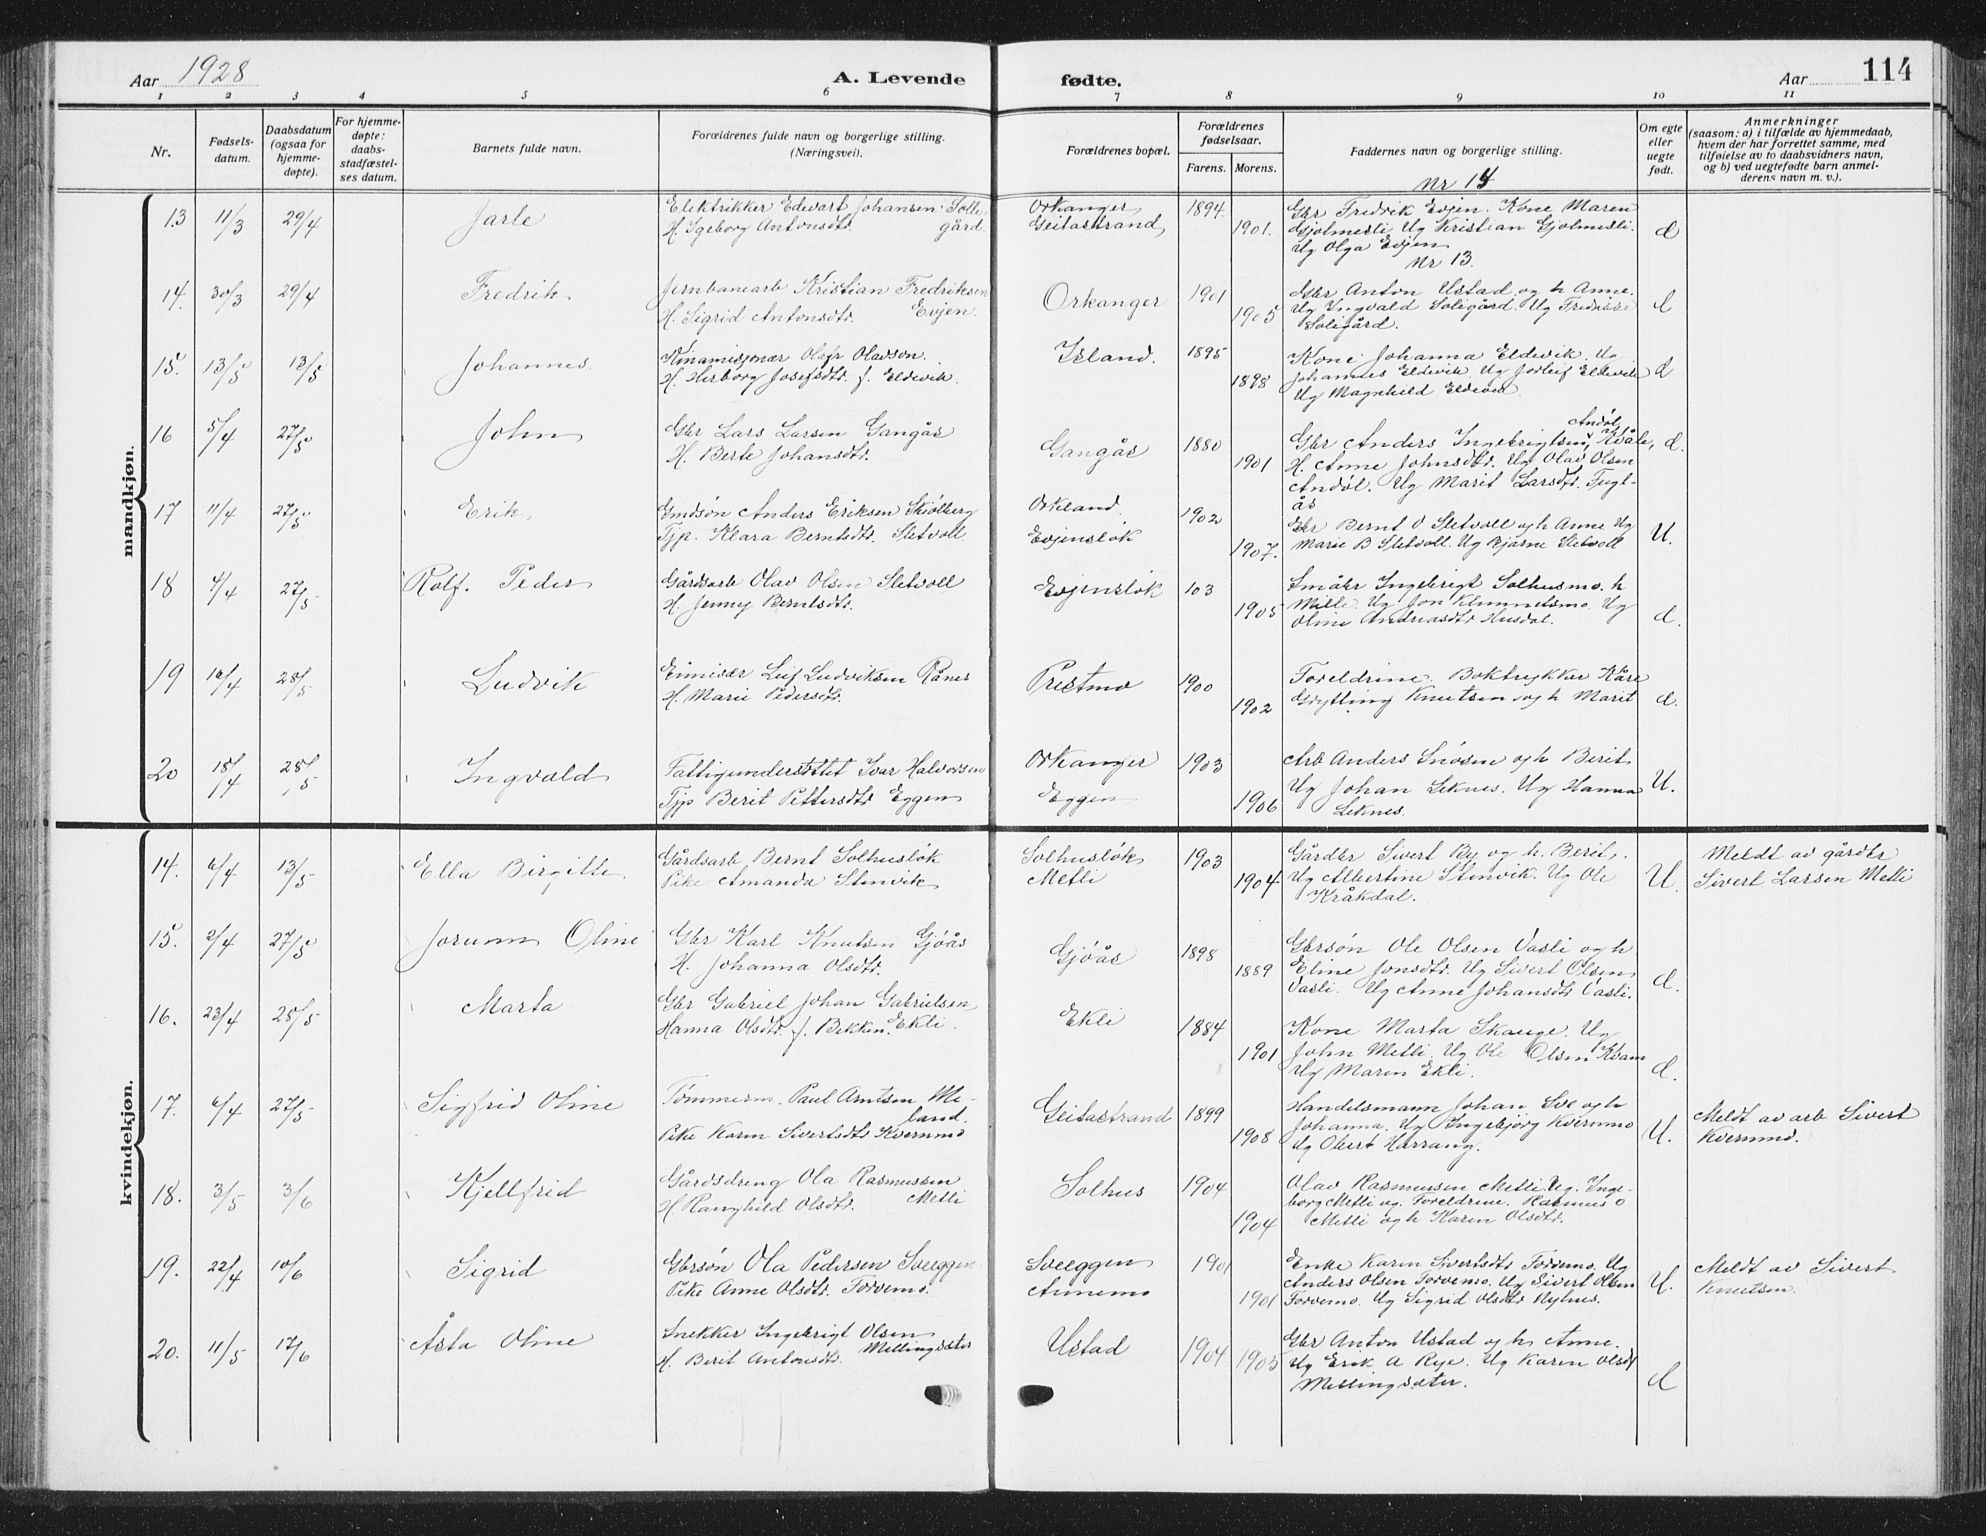 Aar 1928
A. Levende
fødte.
Aar
114
1 2 3 4 5 6 7 8 9 10 11
Nr.
Fødsels-
datum.
Daabsdatum
(ogsaa for
hjemme-
døpte).
For hjemme-
døpte:
daabs-
stadfæstel-
ses datum.
Barnets fulde navn.
Forældrenes fulde navn og borgerlige stilling.
(Næringsvei).
Forældrenes bopæl.
Forældrenes
fødselsaar.
Farens. Morens.
Faddernes navn og borgerlige stilling.
Om egte
eller
uegte
født.
Anmerkninger
(saasom: a) i tilfælde av hjemmedaab,
hvem der har forrettet samme, med
tilføielse av to daabsvidners navn,
og b) ved uegtefødte barn anmel-
derens navn m. v.).
mandkjøn.
Nr 14
13 11/3 29/4 Jarle Elektrikker Edvart Johansen Solli- Orkanger 1894 Gbr Fredrik Evjen. Kone Maren
H. Igeborg Antonsdtr. gård. Geitastrand 1901. Gjølmesli Ug Kristian Gjølmesli. d
Ug Olga Evjen
Nr 13.
14. 30/3 29/4 Fredrik Jernbanearb Kristian Fredriksen Orkanger 1901 Gbr Anton Ustad og h Anne.
H. Sigrid Antonsdtr. Evjen. 1905 Ug Ingvald Soligård. Ug
Soligård.
15. 13/5 Johannes Kinamisjonær Olafr Olavson. Island. 1895 Kone Johanna Eldevik. Ug
H. Herborg Josefsdtr. f. Eldevik. 1898 Johannes Eldevik Ug Jorleif Eldevik d
Ug Magnhild Eldevik
16 5/4 27/5 John Gbr Lars Larsen Gangås Gangås 1880 Gbr Anders Ingebrigtsen Andøl, Kvåle, d.
H. Berte Johansdtr. 1901 H. Anne Johnsdtr. Ug Olav Olsen
Andøl. Ug Marit Larsdtr. Fugl-
ås
17 11/4 27/5 Erik Gmdsøn Anders Eriksen Skjølberg Orkland. 1902 Gbr Bernt O Sletvoll og h Anne Ug
Tjp. Klara Berntsdtr. Sletvoll Evjensløk 1907. Marie B Sletvoll. Ug Bjarne Sletvoll U.
18 4/4 27/5 Rolf. Peder Gårdsarb Olav Olsen Sletvoll Evjensløk 103 Småbr Ingebrigt Solhusmo. h
H. Jenny Berntsdtr. 1905 Mille. Ug Jon Klemmetsmo. Ug
Oline Andreasdtr Husdal. d.
19 16/4 28/5 Ludvik Leif Ludviksen Rånes Prestmo 1900 Foreldrine. Boktrykker Kåre
H. Marie Pedersdtr. 1902 Grytling Knutsen og h Marit d.
20 18/4 28/5 Ingvald Fattigunderstøttet Ivar Halvorsen Orkanger 1903 Arb Anders Snøsen og h Berit
Tjp Berit Pettersdtr Eggen Eggen 1906 Ug Johan Leknes. Ug Hanna U.
Leknes.
kvindekjøn.
14. 6/4 13/5 Ella Birgitte Gårdsarb. Bernt Solhusløk Solhusløk 1903 Gårdbr Sivert By og h. Berit, Meldt av gårdbr
Pike Amanda Stenvik Metli 1904 Ug Albertine Stenvik. Ug Ole U. Sivert Larsen Metli
Kråkdal.
15. 2/4 27/5 Jorunn Oline Gbr Karl Knutsen Gjøås Gjøås 1898 Gbrsøn Ole Olsen Vasli og h
H. Johanna Olsdtr. 1889 Eline Jonsdtr. Ug Sivert Olsen
Vasli. Ug Anne Johansdtr Vasli. d.
16. 23/4 28/5 Marta Gbr Gabriel Johan Gabrielsen Ekli 1884 Kone Marta Skauge. Ug
Hanna Olsdtr. f. Bekken. Ekli. 1901 John Metli. Ug Ole Olsen Kvam
Ug Maren Ekli. d.
17. 6/4 27/5 Sigfrid Oline Tømmerm. Paul Arntsen Me- Geitastrand 1899 Handelsmann Johan Lve og h Meldt av arb Sivert
land. Johanna. Ug Ingebjørg Kvernmo Kvernmo.
Pike Karen Sivertsdtr Kvernmo 1908 Ug Obert Harrang. U.
18. 3/5 3/6 Kjellfrid Gårdsdreng Ola Rasmussen Solhus 1904 Olav Rasmussen Metli Ug. Inge-
H. Ranghild Olsdtr. Metli borg Metli ug. Foreldrene. Rasmus O
1904 Metli og h Karen Olsdtr.
19. 22/4 10/6 Sigrid Gbrsøn Ola Pedersen Sveeggen Sveeggen 1901 Enke Karen Sivertsdtr Torvemo. Ug Meldt av Sivert
Pike Anne Olsdtr. Torvemo. Annemo 1901 Anders Olsen Torvemo. Ug Sivert Olsen U. Knutsen.
Torvemo. Ug Sigrid Olsdtr Nyhus.
20. 11/5 17/6 Åsta Oline Snekker Ingebrigt Olsen Ustad 1904 1905 Gbr Anton Ustad og h Anne.
H. Berit Antonsdtr. Mellingsæter Ug Erik A Rye. Ug Karen Olsdt
Mellingsæter. d